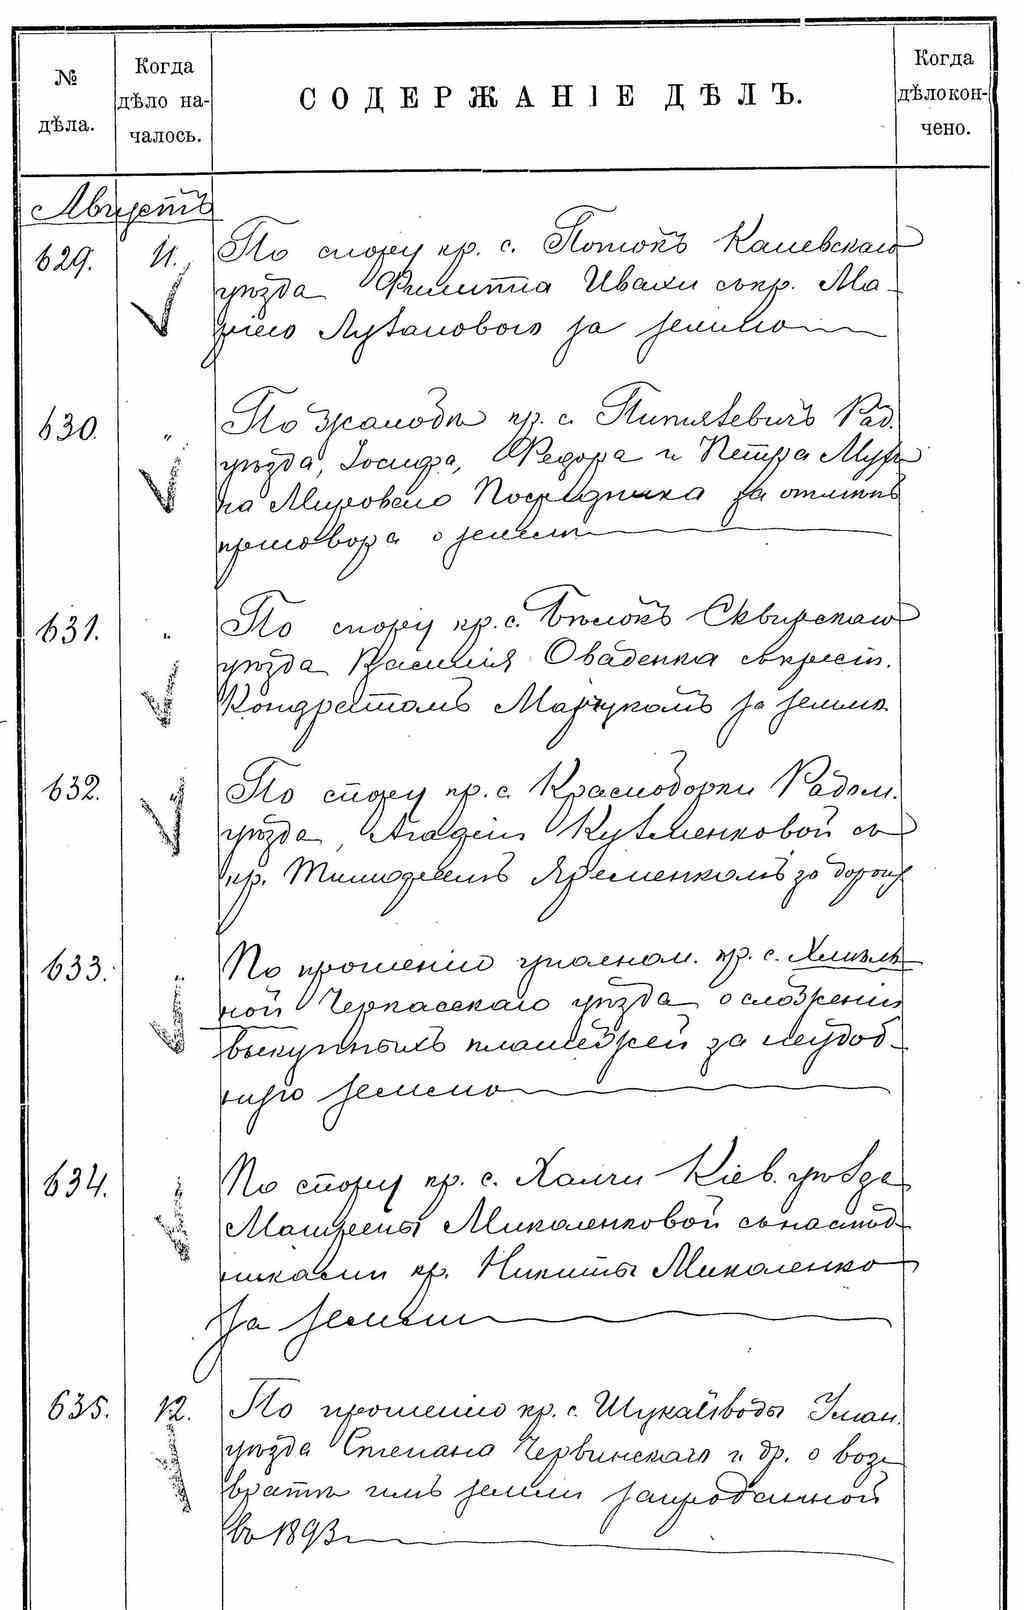 № дѣла.
Когда дѣло на-
чалось.
СОДЕРЖАНІЕ ДѢЛЪ.
Когда
дѣло кон-
чено.
Августъ
629. 11. По спору кр. с. Потокъ Каневскаго
уѣзда Филиппа Ивахи съ кр. Ма-
за землю
630. " По жалобѣ кр. с. Рад.
уѣзда, Іосифа, Федора и Петра
на Мироваго Посредника за отмѣну
приговора о землѣ
631. " По спору кр. с. Бѣлокъ Сквирскаго
уѣзда Василія Оваденка съ крест.
Кондратомъ за землю
632. " По спору кр. с. Красноборки Радом.
уѣзда, Агафіи Кузьменковой съ
кр. Тимофеемъ Яременкомъ за дорогу
633. " По прошенію уполном. кр. с. Хмѣль-
ной Черкасскаго уѣзда о сложеніи
выкупныхъ платежей за неудоб-
ную землю
634. " По спору кр. с. Халчи Кіев. уѣзда
Матрены Миколенковой съ наслѣд-
никами кр. Никиты Миколенко
за землю
635. 12. По прошенію кр. с. Шукайводы Уман.
уѣзда Степана Червинскаго и др. о воз-
вратѣ имъ земли
въ 1893